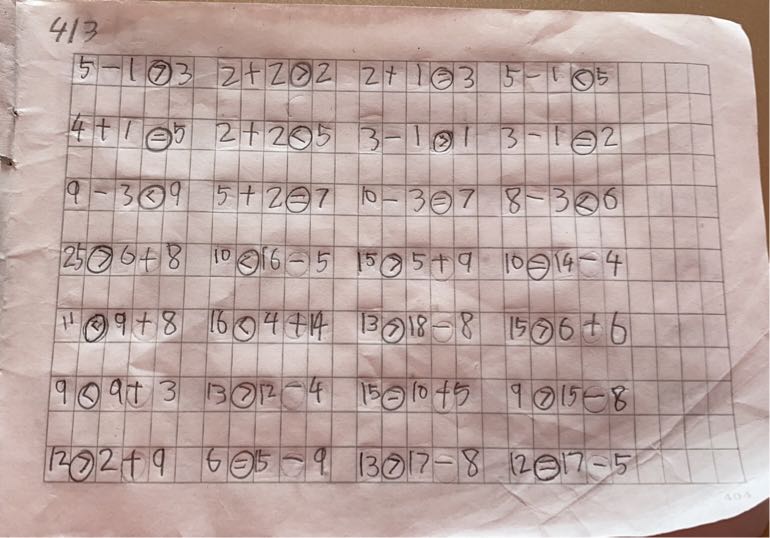 4/3
5-1>3 2+2>2 2+1=3 5-1<5
4+1=5 2+2<5 3-1>1 3-1=2
9-3<9 5+2=7 10-3=7 8-3<6
25>6+8 10<16-5 15>5+9 10=14-4
11<9+8 16<4+14 13>18-8 15>6+6
9<9+3 13>12-4 15=10+5 9>15-8
12>2+9 6=15-9 13>17-8 12=17-5
404